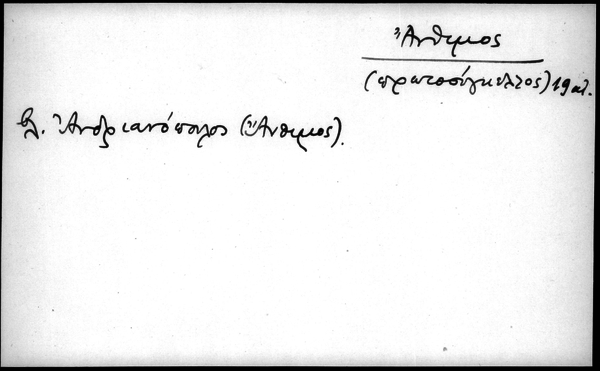 Ἄνθιμος
(πρωτοσύγκελλος) 19 αἰ.
βλ. Ἀνδριανόπουλος (Ἄνθιμος).